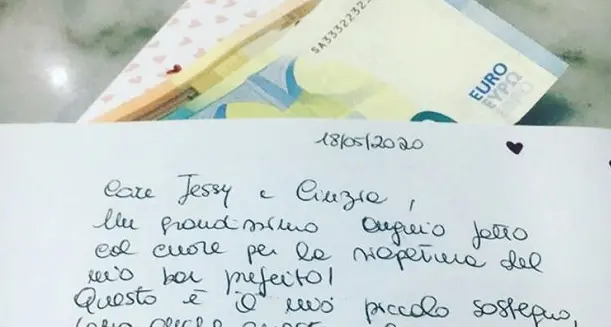 EURO
ΕΥΡΩ
18/05/2020
Care Jessy e Cinzia,
Un grandissimo augurio fatto
col cuore per la riapertura del
mio bar preferito!
Questo è il mio piccolo sostegno,